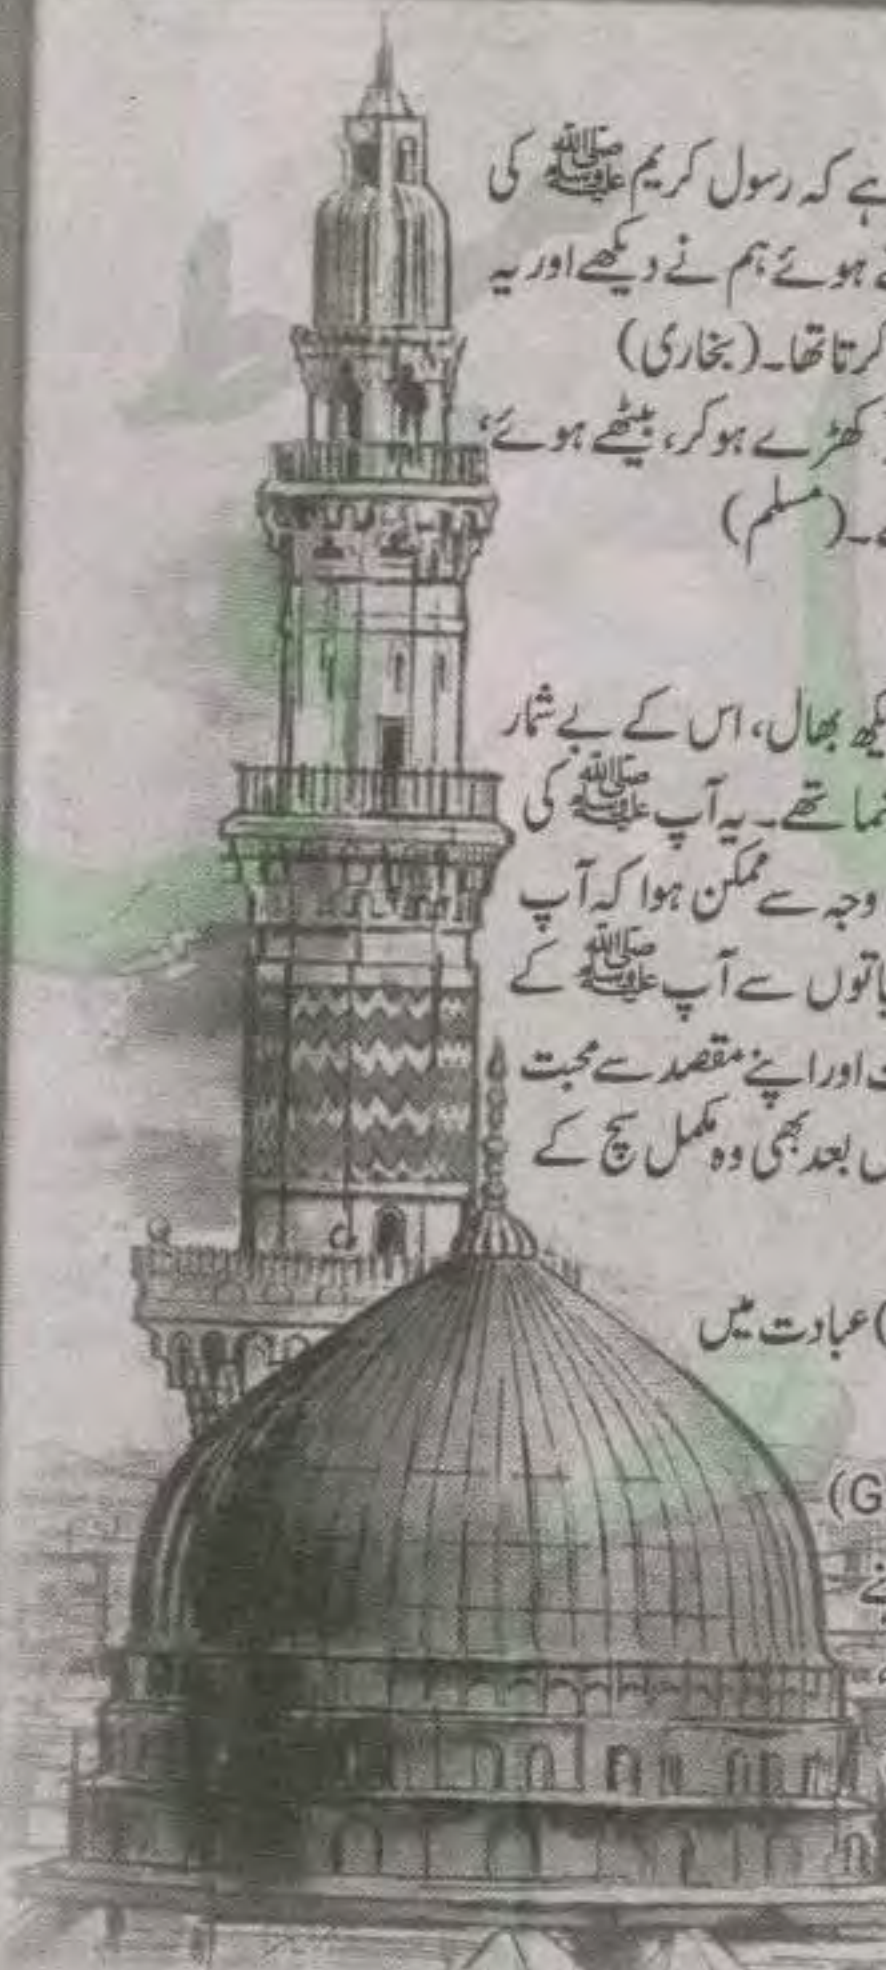 ہے کہ رسول کریم ﷺ کی
ہوئے ہم نے دیکھے اور یہ
کرتا تھا۔ (بخاری)
کھڑے ہوکر، بیٹھے ہوئے،
(مسلم)
بھال، اس کے بے شمار
تھے۔ یہ آپ ﷺ کی
وجہ سے ممکن ہوا کہ آپ
سے آپ ﷺ کے
اور اپنے مقصد سے محبت
بعد بھی وہ مکمل سچ کے
) عبادت میں
(G